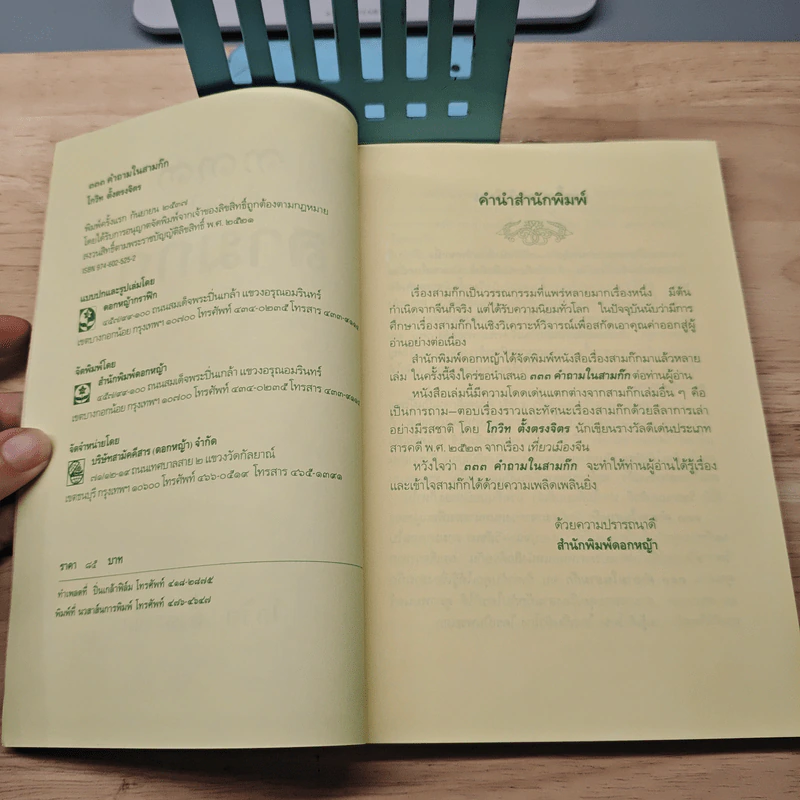 ๓๓๓ คำถามในสามก๊ก
โกวิท ตั้งตรงจิตร
พิมพ์ครั้งแรก กันยายน ๒๕๓๗
โดยได้รับการอนุญาตจัดพิมพ์จากเจ้าของลิขสิทธิ์ถูกต้องตามกฎหมาย
สงวนสิทธิ์ตามพระราชบัญญัติลิขสิทธิ์ พ.ศ. ๒๕๒๑
ISBN 974-602-525-2
แบบปกและรูปเล่มโดย
ดอกหญ้ากราฟิก
๔๕๗/๙๙-๑๐๐ ถนนสมเด็จพระปิ่นเกล้า แขวงอรุณอมรินทร์
เขตบางกอกน้อย กรุงเทพฯ ๑๐๗๐๐ โทรศัพท์ ๔๓๔-๐๒๓๕ โทรสาร
จัดพิมพ์โดย
สำนักพิมพ์ดอกหญ้า
๔๕๗/๙๙-๑๐๐ ถนนสมเด็จพระปิ่นเกล้า แขวงอรุณอมรินทร์
เขตบางกอกน้อย กรุงเทพฯ ๑๐๗๐๐ โทรศัพท์ ๔๓๔-๐๒๓๕ โทรสาร
จัดจำหน่ายโดย
บริษัทสามัคคีสาร (ดอกหญ้า) จำกัด
๗๑/๑๒-๑๙ ถนนเทศบาลสาย ๒ แขวงวัดกัลยาณ์
เขตธนบุรี กรุงเทพฯ ๑๐๖๐๐ โทรศัพท์ ๔๖๖-๐๕๑๙ โทรสาร ๔๖๕-๑๓๙๑
ราคา ๘๕ บาท
ทำเพลตที่ ปิ่นเกล้าฟิล์ม โทรศัพท์ ๔๑๘-๒๘๗๕
พิมพ์ที่ นวสาส์นการพิมพ์ โทรศัพท์ ๔๗๖-๔๖๔๗
คำนำสำนักพิมพ์
เรื่องสามก๊กเป็นวรรณกรรมที่แพร่หลายมากเรื่องหนึ่ง มีต้น
กำเนิดจากจีนก็จริง แต่ได้รับความนิยมทั่วโลก ในปัจจุบันนับว่ามีการ
ศึกษาเรื่องสามก๊กในเชิงวิเคราะห์วิจารณ์เพื่อสกัดเอาคุณค่าออกสู่ผู้
อ่านอย่างต่อเนื่อง
สำนักพิมพ์ดอกหญ้าได้จัดพิมพ์หนังสือเรื่องสามก๊กมาแล้วหลาย
เล่ม ในครั้งนี้จึงใคร่ขอนำเสนอ ๓๓๓ คำถามในสามก๊ก ต่อท่านผู้อ่าน
หนังสือเล่มนี้มีความโดดเด่นแตกต่างจากสามก๊กเล่มอื่น ๆ คือ
เป็นการถาม-ตอบเรื่องราวและทัศนะเรื่องสามก๊กด้วยลีลาการเล่า
อย่างมีรสชาติ โดย โกวิท ตั้งตรงจิตร นักเขียนรางวัลดีเด่นประเภท
สารคดี พ.ศ. ๒๕๒๓ จากเรื่อง เที่ยวเมืองจีน
หวังใจว่า ๓๓๓ คำถามในสามก๊ก จะทำให้ท่านผู้อ่านได้รู้เรื่อง
และเข้าใจสามก๊กได้ด้วยความเพลิดเพลินยิ่ง
ด้วยความปรารถนาดี
สำนักพิมพ์ดอกหญ้า